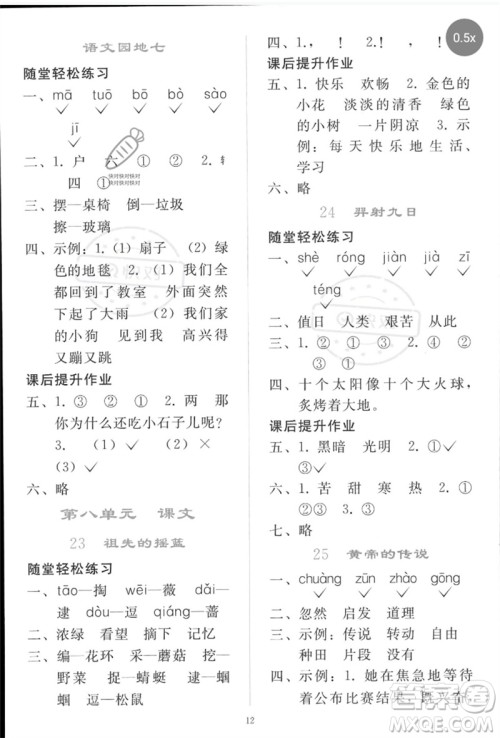 语文园地七
随堂轻松练习
一、mā tuō bō sào
jī
二、1. 户 六 ① ② 2.
四 ② ① ①
三、摆—桌椅 倒—垃圾
擦—玻璃
四、示例：1.（1）扇子（2）绿
色的地毯 2.（1）我们全
都回到了教室 外面突然
下起了大雨（2）我们家
的小狗 见到我 高兴得
又蹦又跳
课后提升作业
五、1. ③ ② ① 2. ④ 那
你为什么还吃小石子儿呢？
3.（1）✓（2）×
（3）✓
六、略
第八单元 课文
23 祖先的摇蓝
随堂轻松练习
一、tāo—掏 wēi—薇 dǎi—
逮 dòu—逗 qiáng—蔷
二、浓绿 看望 摘下 记忆
三、编—花环 采—蘑菇 挖—
野菜 捉—蜻蜓 逮—蝈
蝈 逗—松鼠
四、1. ， ！ 2. ！ ， ！
课后提升作业
五、1. 快乐 欢畅 2. 金色的
小花 淡淡的清香 绿色
的小树 一片阴凉 3. 示
例：每天快乐地生活、
学习
六、略
24 羿射九日
随堂轻松练习
一、shè róng jiàn jià zī
téng
二、值日 人类 艰苦 炎热
三、③ ② ① ④
四、十个太阳像十个大火球，
炙烤着大地。
课后提升作业
五、1. 黑暗 光明 2.
③
六、1. 苦 甜 寒 热 2. ①
②③
七、略
25 黄帝的传说
随堂轻松练习
一、chuàng zūn zhǎo gōng
二、忽然 启发 道理
三、示例：传说 制作 自由
种田 打猎 发现
四、示例：1. 她在焦急地等待
着公布比赛结果
12
0.5x